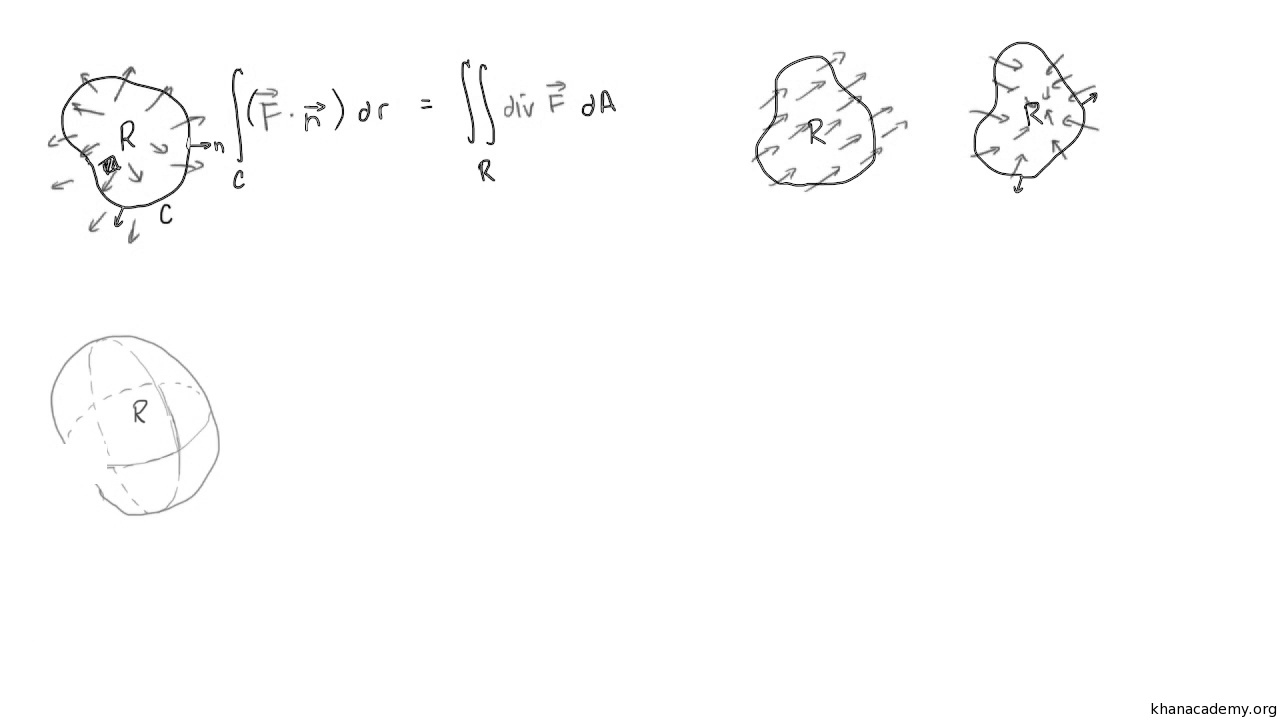 R
n
C
∫ (F⃗ · n⃗) dr = ∬ div F⃗ dA
C
R
R
R
R
khanacademy.org